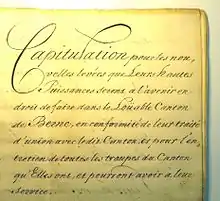 Capitulation pour les nou,
velles levées que Leurs hautes
Puissances seront à l'avenir en
droit de faire dans le Louable Canton
de Berne, en conformité de leur traité
d'union avec le dit Canton, et, pour l'en,
tretien de toutes les troupes du Canton
qu'Elles ont, et pourront avoir à leur
Service.